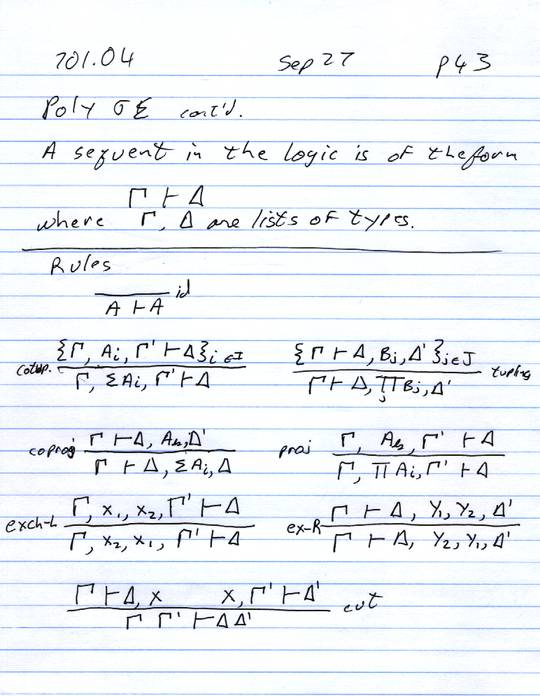 701.04 Sep 27 p43
Poly σΣ cont'd.
A sequent in the logic is of the form
Γ ⊢ Δ
where Γ, Δ are lists of types.
Rules
———
A ⊢ A id
cotup. {Γ, Ai, Γ' ⊢ Δ}i∈I / Γ, ΣAi, Γ' ⊢ Δ {Γ ⊢ Δ, Bj, Δ'}j∈J / Γ ⊢ Δ, ∏j Bj, Δ' tupling
coproj Γ ⊢ Δ, Ak, Δ' / Γ ⊢ Δ, ΣAi, Δ proj Γ, Ak, Γ' ⊢ Δ / Γ, ∏Ai, Γ' ⊢ Δ
exch-L Γ, x1, x2, Γ' ⊢ Δ / Γ, x2, x1, Γ' ⊢ Δ ex-R Γ ⊢ Δ, Y1, Y2, Δ' / Γ ⊢ Δ, Y2, Y1, Δ'
Γ ⊢ Δ, x x, Γ' ⊢ Δ' / Γ Γ' ⊢ Δ Δ' cut